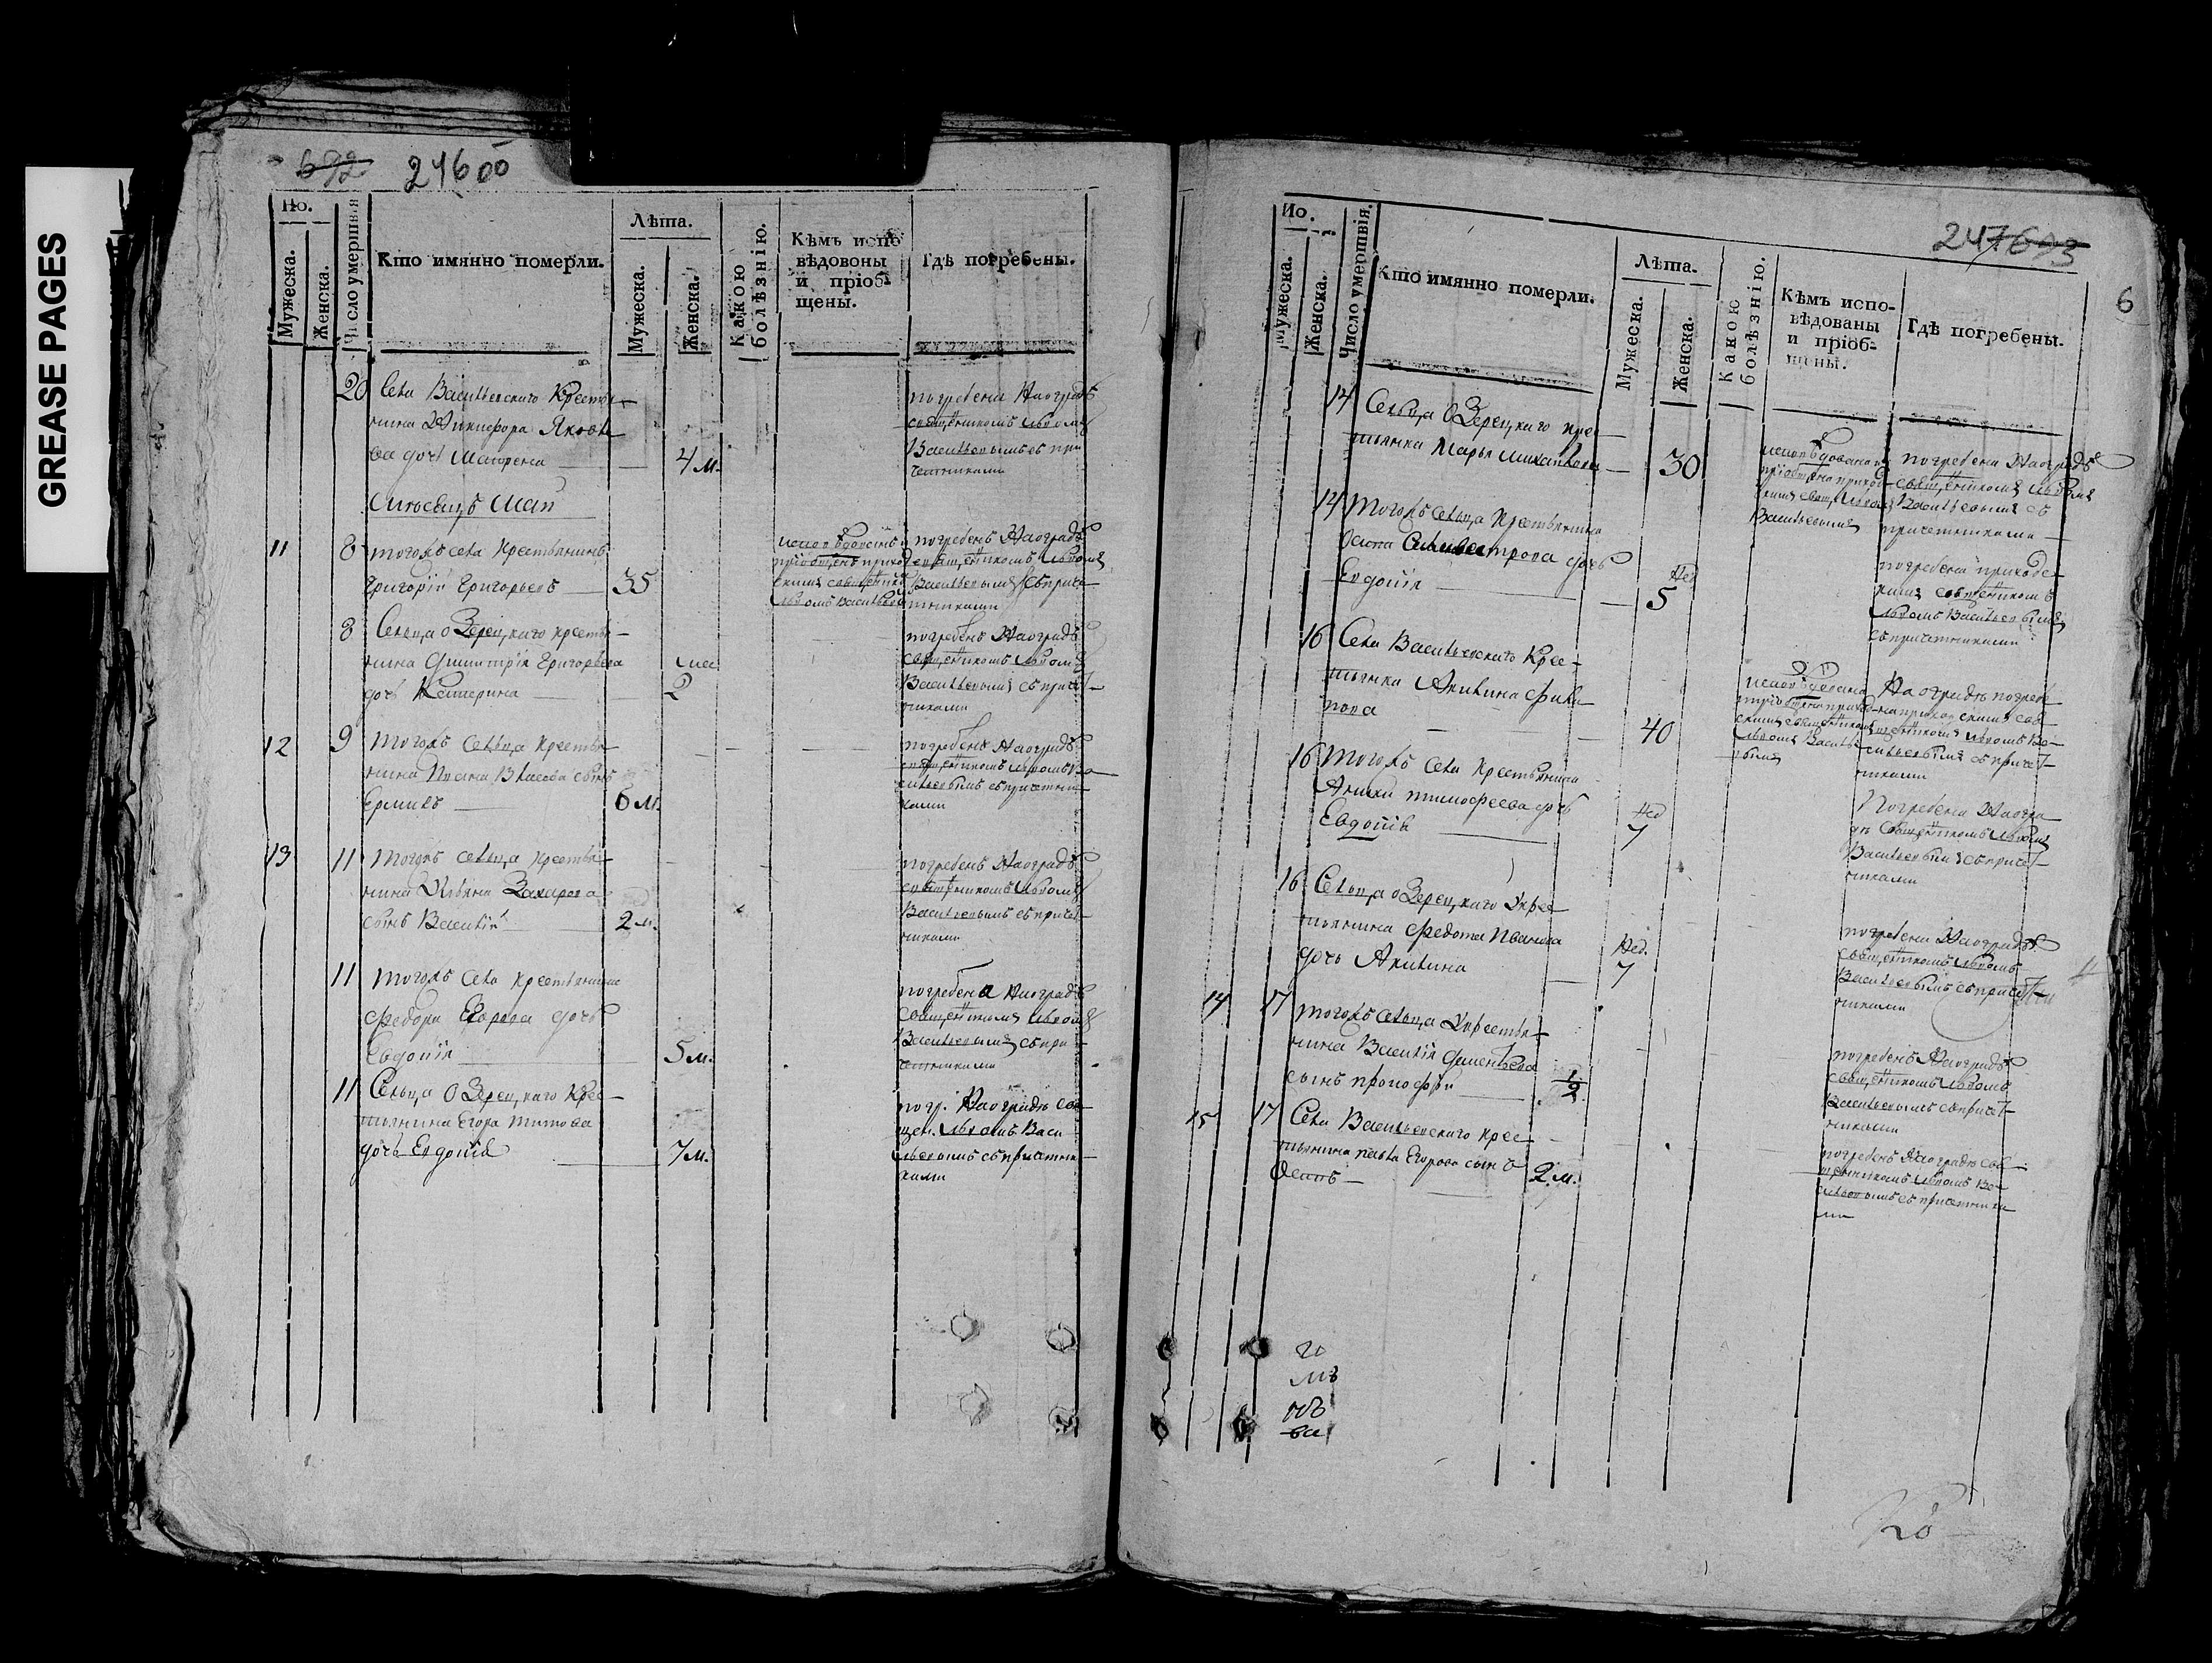 GREASE PAGES
692 246 об
Но.
Мужеска.
Женска.
Число умершвія
Кто имянно померли.
Лѣта.
Мужеска.
Женска.
Какою болѣзнію.
Кѣмъ испо
вѣдованы
и пріоб-
щены.
Гдѣ погребены.
20 Села Васильевскаго Крестья-
нина Никифора Яковле
ва дочь Матрена — 4 м.
погребена На оградѣ
священникомъ Львомъ
Васильевымъ съ при
четниками
Мѣсецъ Маіи
11 8 тогожъ села Крестьянинъ
Григорій Григорьевъ — 35
исповѣдованъ и
пріобщенъ приход
скимъ священнико
Львомъ Василье
погребенъ На оградѣ
священникомъ Львомъ
Васильевымъ съ приче-
тниками
8 Сельца Озерецкаго крестья-
нина Димитрія Григорьева
дочь Катерина — мес 2
погребенъ На оградѣ
священникомъ Львомъ
Васильевымъ съ причет-
никами
12 9 тогожъ сельца крестья-
нина Ивана Власова сынъ
Ермилъ — 6 м.
погребенъ На оградѣ
священникомъ Львомъ Ва-
сильевымъ съ причетни-
ками
13 11 тогожъ сельца крестья-
нина Ульяна Захарова
сынъ Василій — 2 м.
погребенъ На оградѣ
священникомъ Львомъ
Васильевымъ съ причет-
никами
11 тогожъ села крестьянина
Федора Егорова дочь
Евдокія — 5 м.
погребена На оградѣ
священникомъ Львомъ
Васильевымъ съ при-
четниками
11 Сельца Озерецкаго Крес-
тьянина Егора Титова
дочь Евдокія — 7 м.
погр. На оградѣ свя-
щен. Львомъ Васи
льевымъ съ причетни-
ками
247 693
6
Но.
Мужеска.
Женска.
Число умершвія.
Кто имянно померли.
Лѣта.
Мужеска.
Женска.
Какою болѣзнію.
Кѣмъ испо-
вѣдованы
и пріоб-
щены.
Гдѣ погребены.
14 Сельца Озерецкаго крес-
тьянка Марья Михайлова — 30
исповѣдована и
пріобщена приход
скимъ свящ. Львомъ
Васильевымъ
погребена На оградѣ
священникомъ Львомъ
Васильевымъ съ
причетниками —
14 тогожъ сельца Крестьянина
Осипа Селивестрова дочь
Евдокія — Нед 5
погребена приходс-
кимъ священникомъ
Львомъ Васильевымъ
съ причетниками
16 Села Васильевскаго Крес-
тьянка Акилина Фили
пова — 40
исповѣдована
пріобщена приход
скимъ священникомъ
Львомъ Василь-
евымъ
На оградѣ погребе
на приходскимъ свя-
щенникомъ Львомъ Ва-
сильевымъ съ причет-
никами
16 тогожъ села крестьянина
Аники тимофеева дочь
Евдокія — Нед 7
Погребена На огра-
дѣ священникомъ Львомъ
Васильевымъ съ причет-
никами
16 Сельца Озерецкаго Крес-
тьянина Федота Иванова
дочь Акилина — Нед. 7
погребена На оградѣ
священникомъ Львомъ
Васильевымъ съ причет-
никами
14 17 тогожъ сельца Крестья-
нина Василія Дементьева
сынъ прокофій — 1/2
погребенъ На оградѣ
священникомъ Львомъ
Васильевымъ съ причет-
никами
15 17 Села Васильевскаго крес-
тьянина павла Егорова сынъ
Осипъ — 2 м.
погребенъ На оградѣ свя-
щенникомъ Львомъ Ва-
сильевымъ съ причетника
ми